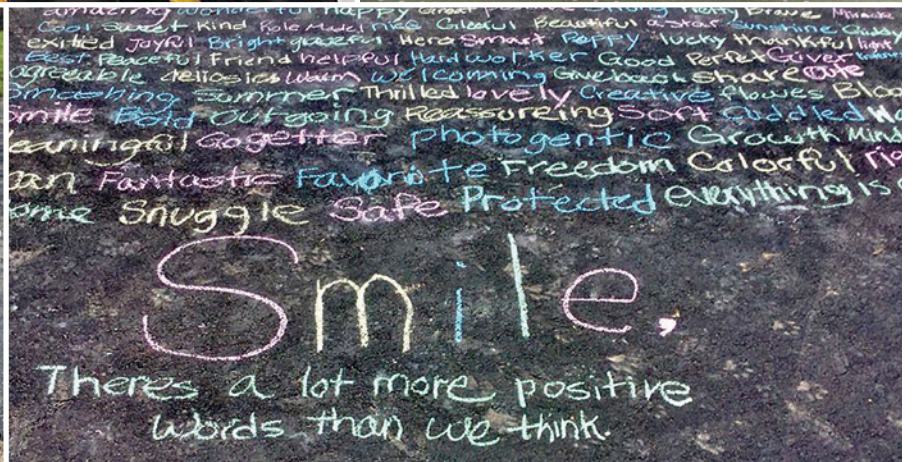 amazing wonderful happy Great Brave
Cool Sweet Kind Role Model nice Gleeful Beautiful a star Sunshine
exitied Joyful Bright graceful Hero Smart Peppy lucky thankful light
Best Peaceful Friend helpful Hard worker Good Perfect Giver
agreeable delicsies Warm welcomming Give back share cute
Smashing Summer Thrilled lovely Creative flowes
Smile Bold outgoing Reassureing Soft Cuddled
Gogetter photogentic Growth Mind
Fantastic Favorite Freedom Colorful
Snuggle Safe Protected everything is
Smile,
Theres a lot more positive
words than we think.